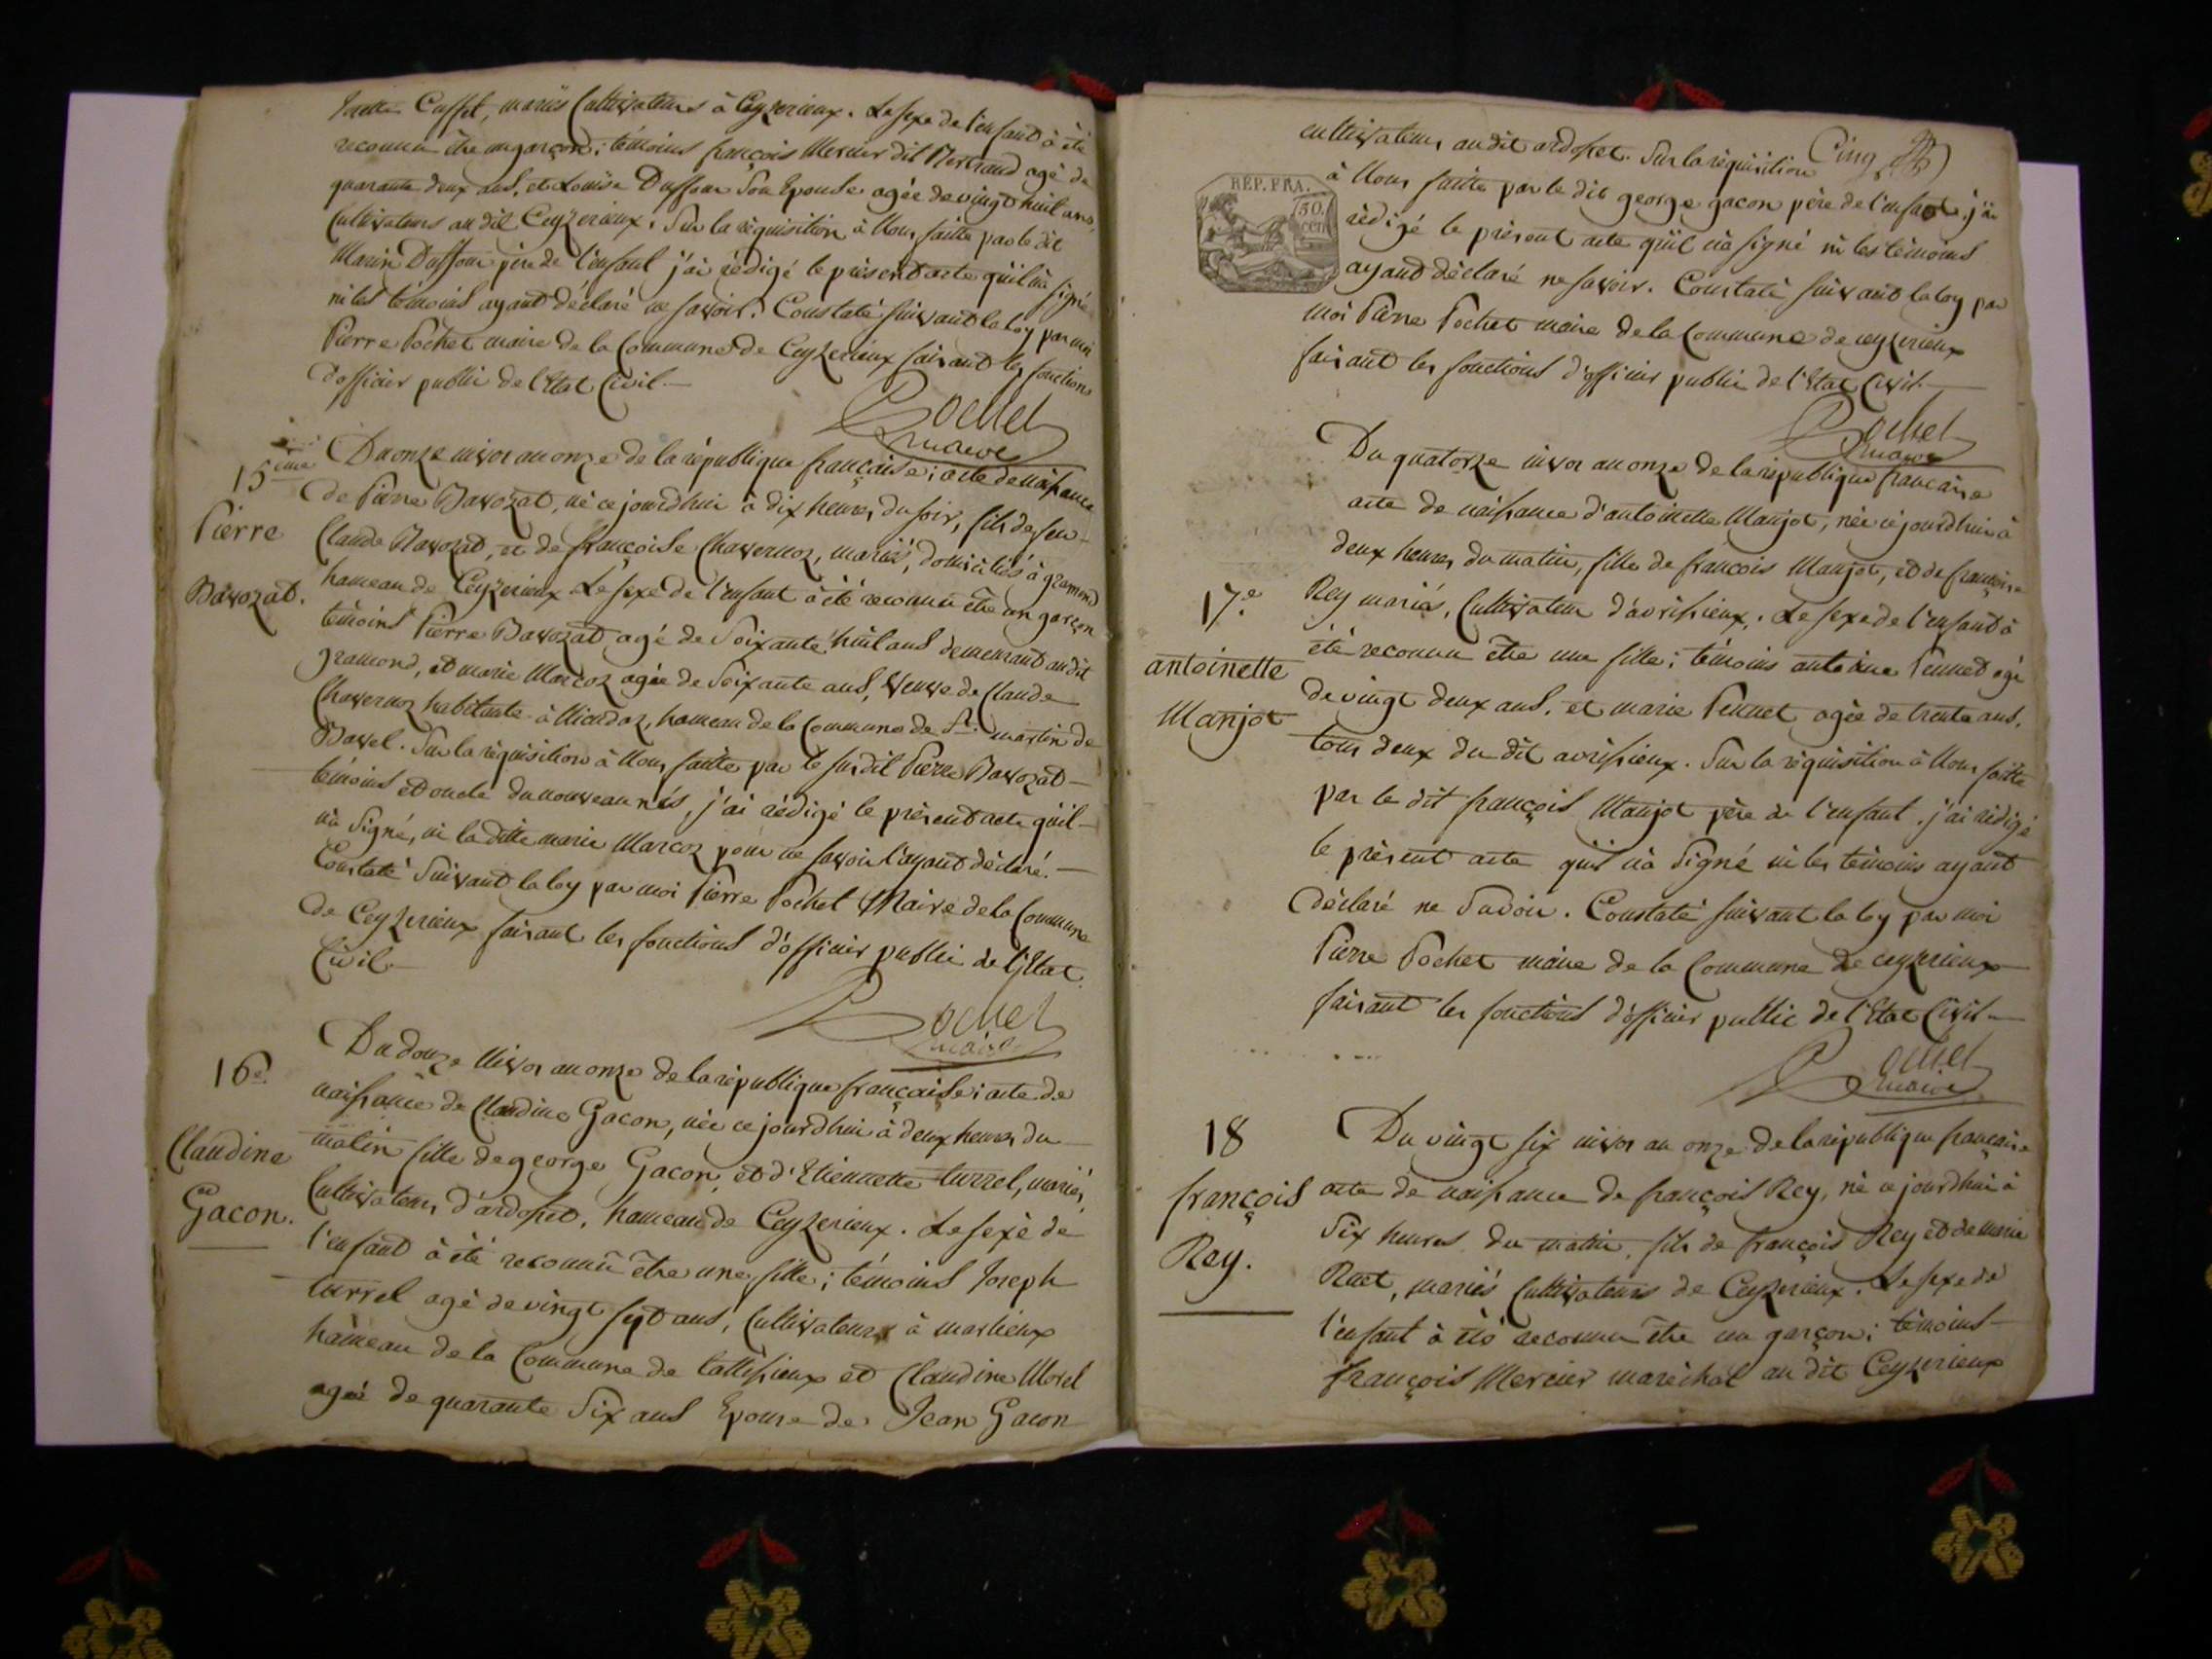 Cuffet, mariés Cultivateurs à Ceyzerieux. Le sexe de l'enfant à été
reconnu être un garçon; témoins françois Mercier dit Bertrand agé de
quarante deux ans, et Louise Duffour son Epouse agée de vingt huit ans,
Cultivateurs au dit Ceyzerieux. Sur la réquisition à Nous faitte par le dit
Marin Duffour père de l'enfant j'ai rédigé le présent acte qu'il n'a signé
ni les témoins ayant déclaré ne savoir. Constaté suivant la loy par moi
Pierre Pochet maire de la Commune de Ceyzerieux faisant les fonctions
d'officier public de l'Etat Civil.
Pochet
maire
15ème
Pierre
Bavozat.
Du onze nivos an onze de la république française; acte de naissance
de Pierre Bavozat, né ce jourdhui à dix heures du soir, fils de feu
Claude Bavozat, et de françoise Chavernoz, mariés, domiciliés à gramond
hameau de Ceyzerieux. Le sexe de l'enfant à été reconnu être un garçon
témoins Pierre Bavozat agé de soixante huit ans demeurant au dit
gramond, et marie Marcoz agée de soixante ans, Veuve de Claude
Chavernoz habitante à hameau de la Commune de St. martin de
Bavel. Sur la réquisition à Nous faitte par le susdit Pierre Bavozat
témoins et oncle du nouveau nés, j'ai rédigé le présent acte qu'il
n'a signé, ni la ditte marie Marcoz pour ne savoir l'ayant déclaré.
Constaté suivant la loy par moi Pierre Pochet Maire de la Commune
de Ceyzerieux faisant les fonctions d'officier public de l'Etat
Civil.
Pochet
maire
16e.
Claudine
Gacon.
Du douze Nivos an onze de la république française; acte de
naissance de Claudine Gacon, née ce jourdhui à deux heures du
matin fille de george Gacon, et d'Etiennette turrel, mariés,
Cultivateurs d'ardosset, hameau de Ceyzerieux. Le sexe de
l'enfant à été reconnu être une fille; témoins Joseph
turrel agé de vingt sept ans, Cultivateurs à marlieux
hameau de la Commune de tallissieux et Claudine Morel
agée de quarante six ans Epouse de Jean Gacon
Cinq
REP. FRA.
50.
cen
cultivateurs au dit ardosset. Sur la réquisition
à Nous faitte par le dit george gacon père de l'enfant j'ai
rédigé le présent acte qu'il n'a signé ni les témoins
ayant déclaré ne savoir. Constaté suivant la loy par
moi Pierre Pochet maire de la Commune de ceyzerieux
faisant les fonctions d'officier public de l'Etat Civil.
Pochet
maire
17e.
antoinette
Manjot
Du quatorze nivos an onze de la république française
acte de naissance d'antoinette Manjot, née ce jourdhui à
deux heures du matin, fille de françois Manjot, et de françoise
Rey mariés, Cultivateurs d'avrissieux. Le sexe de l'enfant à
été reconnu être une fille; témoins antoine Pennet agé
de vingt deux ans. et marie Pennet agée de trente ans.
tous deux du dit avrissieux. Sur la réquisition à Nous faitte
par le dit françois Manjot père de l'enfant. j'ai rédigé
le présent acte qu'il n'a signé ni les témoins ayant
déclaré ne savoir. Constaté suivant la loy par moi
Pierre Pochet maire de la Commune de ceyzerieux
faisant les fonctions d'officier public de l'Etat Civil.
Pochet
maire
18
françois
Rey.
Du vingt six nivos an onze de la république française
acte de naissance de françois Rey, né ce jourdhui à
six heures du matin, fils de françois Rey et de marie
Ruet, mariés Cultivateurs de Ceyzerieux. Le sexe de
l'enfant à été reconnu être un garçon; témoins
françois Mercier maréchal au dit Ceyzerieux